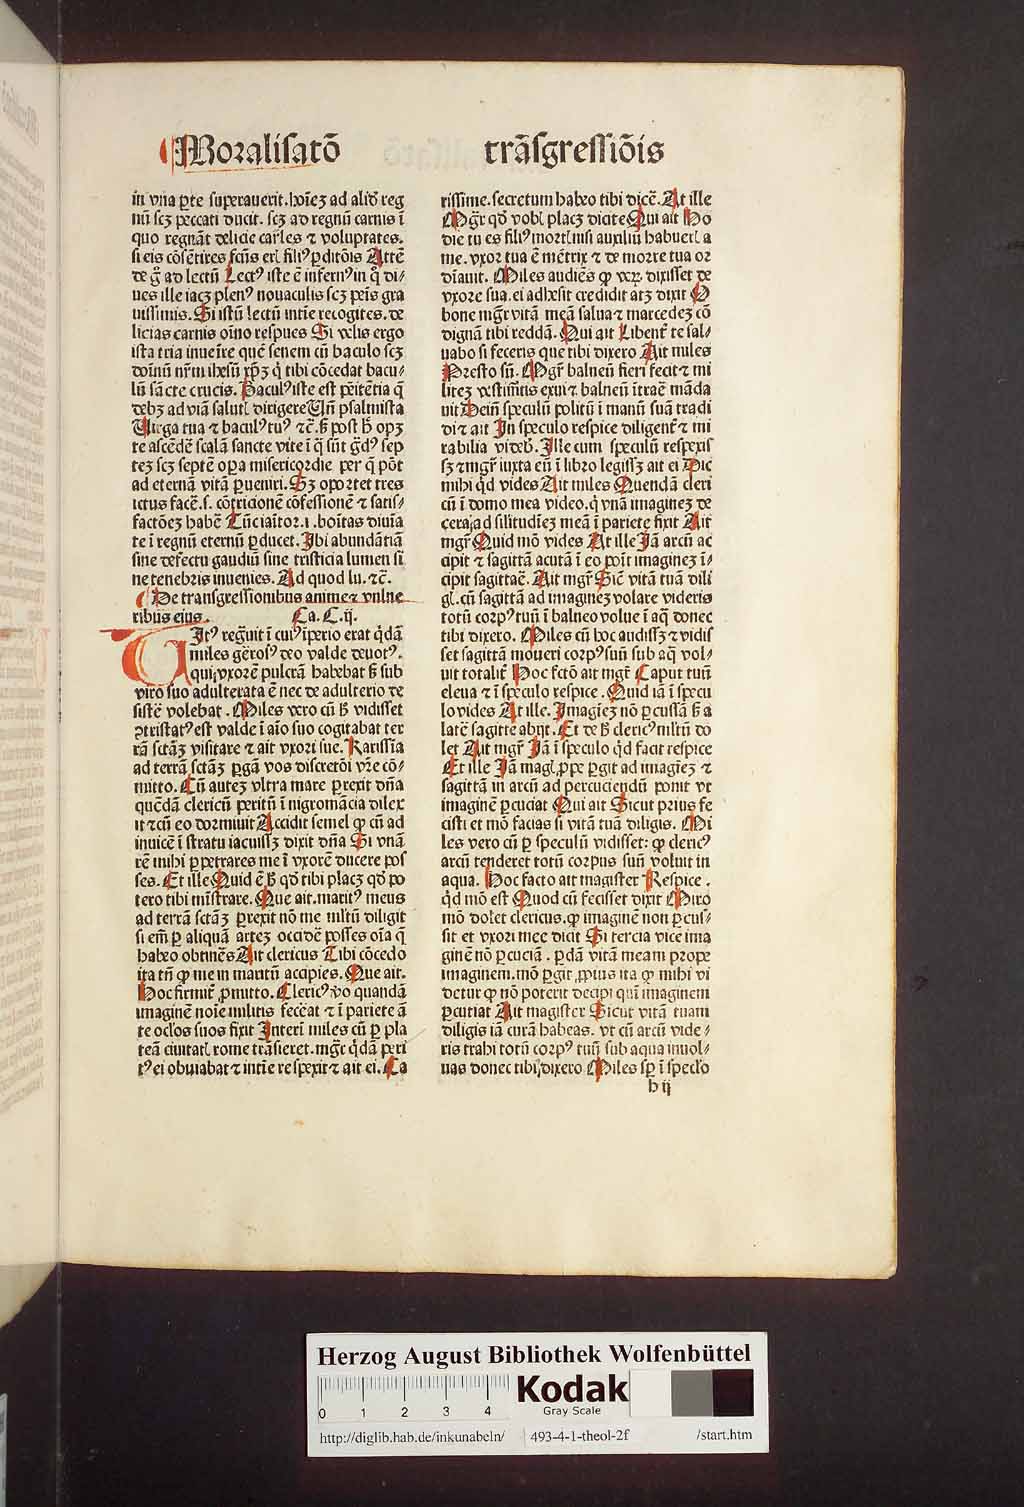 Moralisatō trāsgressiōis
in vna ꝑte superauerit. hoiēz ad aliđ reg
nū scꝫ peccati ducit. scꝫ ad regnū carnis ī
quo regnāt delicie car̄les ⁊ voluptates.
si eis cōsētires fc̄us er̄l filiꝰ ꝑditōis Attē
de g̊ ad lectū Lectꝰ iste ē infernꝰ in q̊ di⸗
ues ille iacꝫ plenꝰ nouaculis scꝫ peīs gra
uissimis. Si istū lectū intīe recogites. de
licias carnis oīno respues Si velis ergo
ista tria inueīre que ē senem cū baculo scꝫ
doīnū nr̄m ihesū xp̄ꝫ q̇ tibi cōcedat bacu⸗
lū sācte crucis. Baculꝰ iste est pēitētia q̄
debꝫ ad viā salutꝭ dirigere Uñ psalmista
Uirga tua ⁊ baculꝰ tuꝰ ⁊c̄. ß post h̄ opꝫ
te ascēdē scalā sancte vite ī q̄ sūt gᵭꝰ sep
teꝫ scꝫ septē oꝑa misericordie per q̄ pōt
ad eternā vitā ꝑueniri. Sꝫ oportet tres
ictus facē. s. cōtricionē cōfessionē ⁊ satis⸗
factōeꝫ habē Tūc ianitor. i. boītas diuīa
te ī regnū eternū ꝑducet. Ibi abundātiā
sine defectu gaudiū sine tristicia lumen si
ne tenebris inuenies. Ad quod lu. ⁊c̄.
De transgressionibus anime ⁊ vulne
ribus eius. Ca. C.ij.
Titꝰ regn̄uit ī cuiꝰ īperio erat q̇dā
miles gēr̄osꝰ deo valde deuotꝰ.
qui vxorē pulcrā habebat ß sub
viro suo adulterata ē nec de adulterio de
sistē volebat. Miles vero cū ß vidisset
ꝯtristatꝰ est valde ī aīo suo cogitabat ter
rā sctāꝫ visitare ⁊ ait vxori sue. Karissīa
ad terrā sctāꝫ ꝑgā vos discretōi vr̄e cō⸗
mitto. Cū autez vltra mare ꝑrexit dn̄a
quēdā clericū peritū ī nigromācia dilex
it ⁊ cū eo dormiuit Accidit semel ꝙ cū ad
inuicē ī stratu iacuissꝫ dixit dn̄a Si vnā
rē mihi ꝑpetrares me ī vxorē ducere pos
ses. Et ille Quid ē ß qđ tibi placꝫ qđ po
tero tibi mīstrare. Que ait. maritꝰ meus
ad terrā sctāꝫ ꝑrexit nō me mltū diligit
si em̄ ꝑ aliquā artez occidē posses oīa q̄
habeo obtinēs Ait clericus Tibi cōcedo
ita tn̄ ꝙ me in maritū accipies. Que ait.
Hoc firmit̄ ꝓmitto. Clericꝰ v̄o quandā
imaginē noīe militis fecēat ⁊ ī pariete ā
te oclos suos fixit Interī miles cū ꝑ pla
teā ciuitatꝭ rome trāsieret. mgr̄ q̇dā peri
tꝰ ei obuiabat ⁊ intīe respexit ⁊ ait ei. Ca
rissime. secretum habeo tibi dicē. At ille
Mgr̄ qđ vobꝭ placꝫ dicite Qui ait Ho
die tu es filiꝰ mortꝭ nisi auxiliū habuerꝭ a
me. vxor tua ē mētrix ⁊ de morte tua or
dīauit. Miles audiēs ꝙ veꝝ dixisset de
vxore sua. ei adhesit credidit atꝫ dixit O
bone mgr̄ vitā meā salua ⁊ marcedeꝫ cō
dignā tibi reddā. Qui ait Libent̄ te sal⸗
uabo si feceris que tibi dixero Ait miles
Presto sū. Mgr̄ balneū fieri fecit ⁊ mi
liteꝫ vestim̄tis exui ⁊ balneū ītraē māda
uit Dein̄ speculū politū ī manū suā tradi
di ⁊ ait In speculo respice diligent̄ ⁊ mi
rabilia videb̄. Ille cum speculū respexis
sꝫ ⁊ mgr̄ iuxta eū ī libro legissꝫ ait ei Dic
mihi qđ vides Ait miles Quendā cleri
cū ī domo mea video. q̇ vnā imagineꝫ de
cera ad sil̄itudīeꝫ meā ī pariete fixit Ait
mgr̄ Quid mō vides At ille Iā arcū ac
cipit ⁊ sagittā acutā ī eo poīt imagineꝫ ī⸗
cipit sagittaē. Ait mgr̄ Sic̄ vitā tuā dili
gꝭ. cū sagittā ad imagineꝫ volare videris
totū corpꝰ tuū ī balneo volue ī aq̄ donec
tibi dixero. Miles cū hoc audissꝫ ⁊ vidis
set sagittā moueri corpꝰ suū sub aq̄ vol⸗
uit totalit̄ Hoc fctō ait mgr̄ Caput tuū
eleua ⁊ ī speculo respice. Quid iā ī specu
lo vides At ille. Imagieꝫ nō ꝑcussā ß a
latē sagitte abijt. Et de ß clericꝰ mltū do
let Ait mgr̄ Iā ī speculo qđ facit respice
Et ille Iā magꝭ ꝓpe ꝑgit ad imagieꝫ ⁊
sagittā in arcū ad percuciendū ponit vt
imaginē ꝑcuciat Qui ait Sicut prius fe
cisti et mō facias si vitā tuā diligis. Mi
les vero cū ꝑ speculū vidisset: ꝙ clericꝰ
arcū tenderet totū corpus suū voluit in
aqua. Hoc facto ait magister Respice.
qđ mō est Quod cū fecisset dixit Miro
mō dolet clericus. ꝙ imaginē non ꝑcus⸗
sit et vxori mee dicit Si tercia vice ima
ginē nō ꝑcuciā. ꝑdā vitā meam prope
imaginem. mō ꝑgit ꝓpius ita ꝙ mihi vi
detur ꝙ nō poterit decipi quī imaginem
ꝑcutiat Ait magister Sicut vitā tuam
diligis iā curā habeas. vt cū arcū vide⸗
ris trahi totū corpꝰ tuū sub aqua inuol⸗
uas donec tibi dixero Miles sꝑ ī speclo
h ij
Herzog August Bibliothek Wolfenbüttel
0 1 2 3 4
Kodak
Gray Scale
http://diglib.hab.de/inkunabeln/ 493-4-1-theol-2f /start.htm